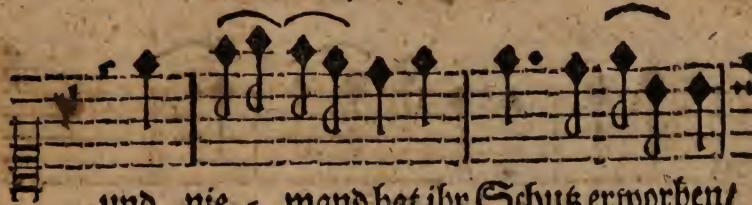 und nie - mand hat ihr Schutz erworben/